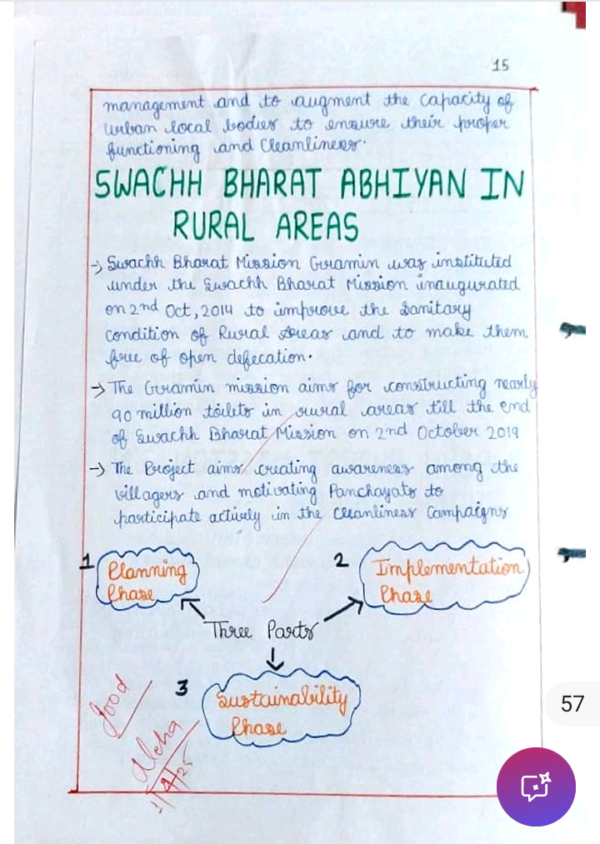 15
management and to augment the capacity of
urban local bodies to ensure their proper
functioning and Cleanliness.
SWACHH BHARAT ABHIYAN IN
RURAL AREAS
→ Swachh Bharat Mission Gramin was instituted
under the Swachh Bharat Mission inaugurated
on 2nd Oct, 2014 to improve the Sanitary
condition of Rural Areas and to make them
free of open defecation.
→ The Gramin mission aims for constructing nearly
90 million toilets in rural areas till the end
of Swachh Bharat Mission on 2nd October 2019
→ The Project aims creating awareness among the
villagers and motivating Panchayats to
participate actively in the Cleanliness Campaigns
1
Planning
Phase
2
Implementation
Phase
Three Parts
3
Sustainability
Phase
Good
57